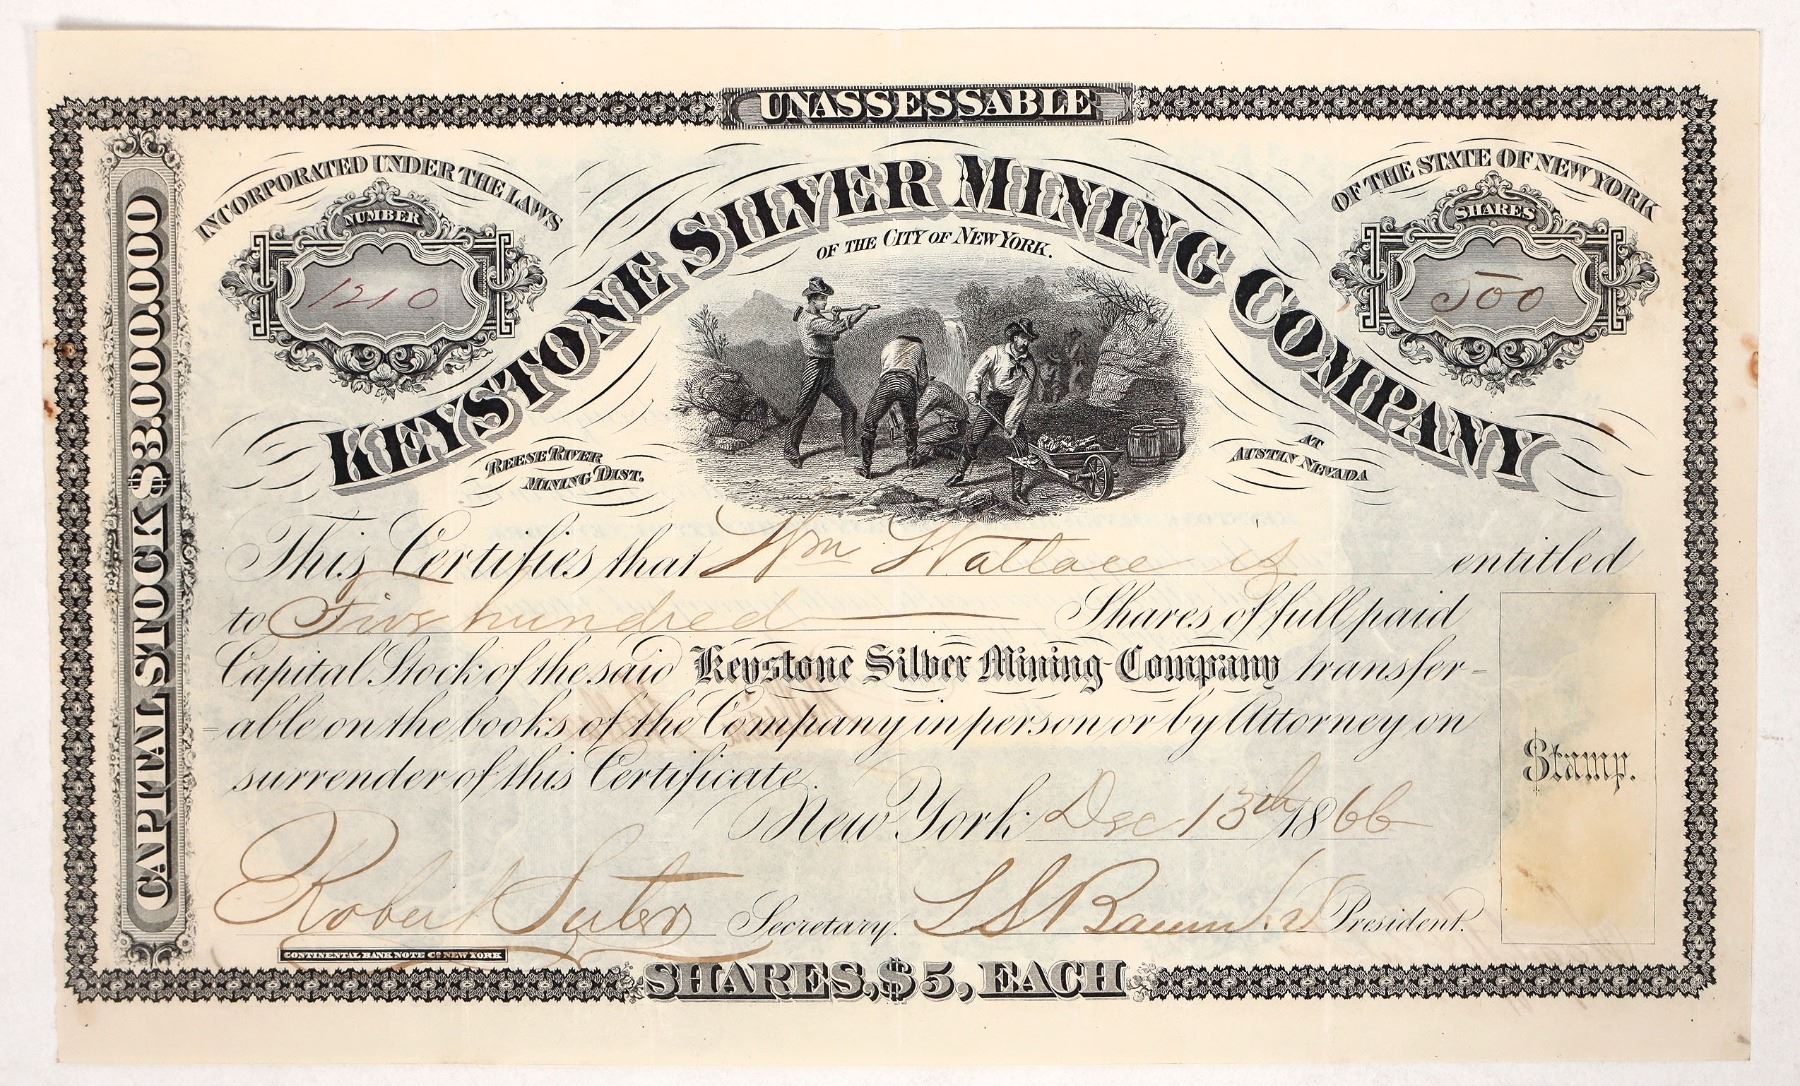 UNASSESSABLE
INCORPORATED UNDER THE LAWS
OF THE STATE OF NEW YORK
NUMBER
1210
SHARES
500
KEYSTONE SILVER MINING COMPANY
OF THE CITY OF NEW YORK.
REESE RIVER
MINING DIST.
AT
AUSTIN NEVADA
CAPITAL STOCK $3.000.000
This Certifies that Wm Wallace is entitled
to Five hundred Shares of full paid
Capital Stock of the said Keystone Silver Mining Company transfer-
=able on the books of the Company in person or by Attorney on
surrender of this Certificate.
New York Dec 13th 1866
Stamp.
Robert Suter Secretary. L S President.
CONTINENTAL BANK NOTE Co NEW YORK
SHARES, $5, EACH